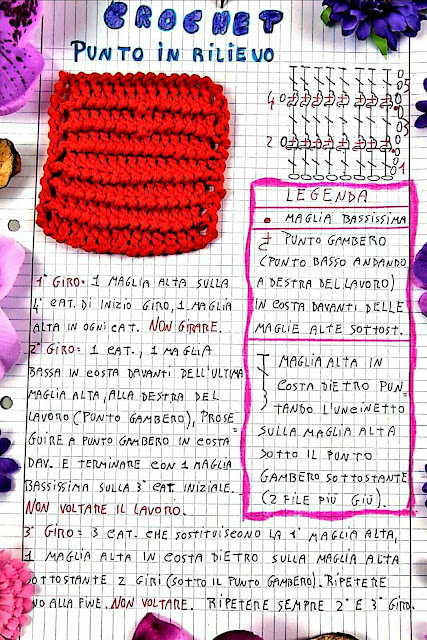 CROCHET
PUNTO IN RILIEVO
5
4
3
2
1
LEGENDA
MAGLIA BASSISSIMA
PUNTO GAMBERO
(PONTO BASSO ANDANDO
A DESTRA DEL LAVORO)
IN COSTA DAVANTI DELLE
MAGLIE ALTE SOTTOST.
MAGLIA ALTA IN
COSTA DIETRO PUN=
TANDO L'UNCINETTO
SULLA MAGLIA ALTA
SOTTO IL PUNTO
GAMBERO SOTTOSTANTE
(2 FILE PIÙ GIÙ).
1° GIRO= 1 MAGLIA ALTA SULLA
4° CAT. DI INIZIO GIRO, 1 MAGLIA
ALTA IN OGNI CAT. NON GIRARE.
2° GIRO= 1 CAT., 1 MAGLIA
BASSA IN COSTA DAVANTI DELL'ULTIMA
MAGLIA ALTA, ALLA DESTRA DEL
LAVORO (PUNTO GAMBERO), PROSE=
GUIRE A PUNTO GAMBERO IN COSTA
DAV. E TERMINARE CON 1 MAGLIA
BASSISSIMA SULLA 3° CAT. INIZIALE.
NON VOLTARE IL LAVORO.
3° GIRO= 3 CAT. CHE SOSTITUISCONO LA 1° MAGLIA ALTA,
1 MAGLIA ALTA IN COSTA DIETRO SULLA MAGLIA ALTA
SOTTOSTANTE 2 GIRI (SOTTO IL PUNTO GAMBERO). RIPETERE
NO ALLA FINE. NON VOLTARE. RIPETERE SEMPRE 2° E 3° GIRO.